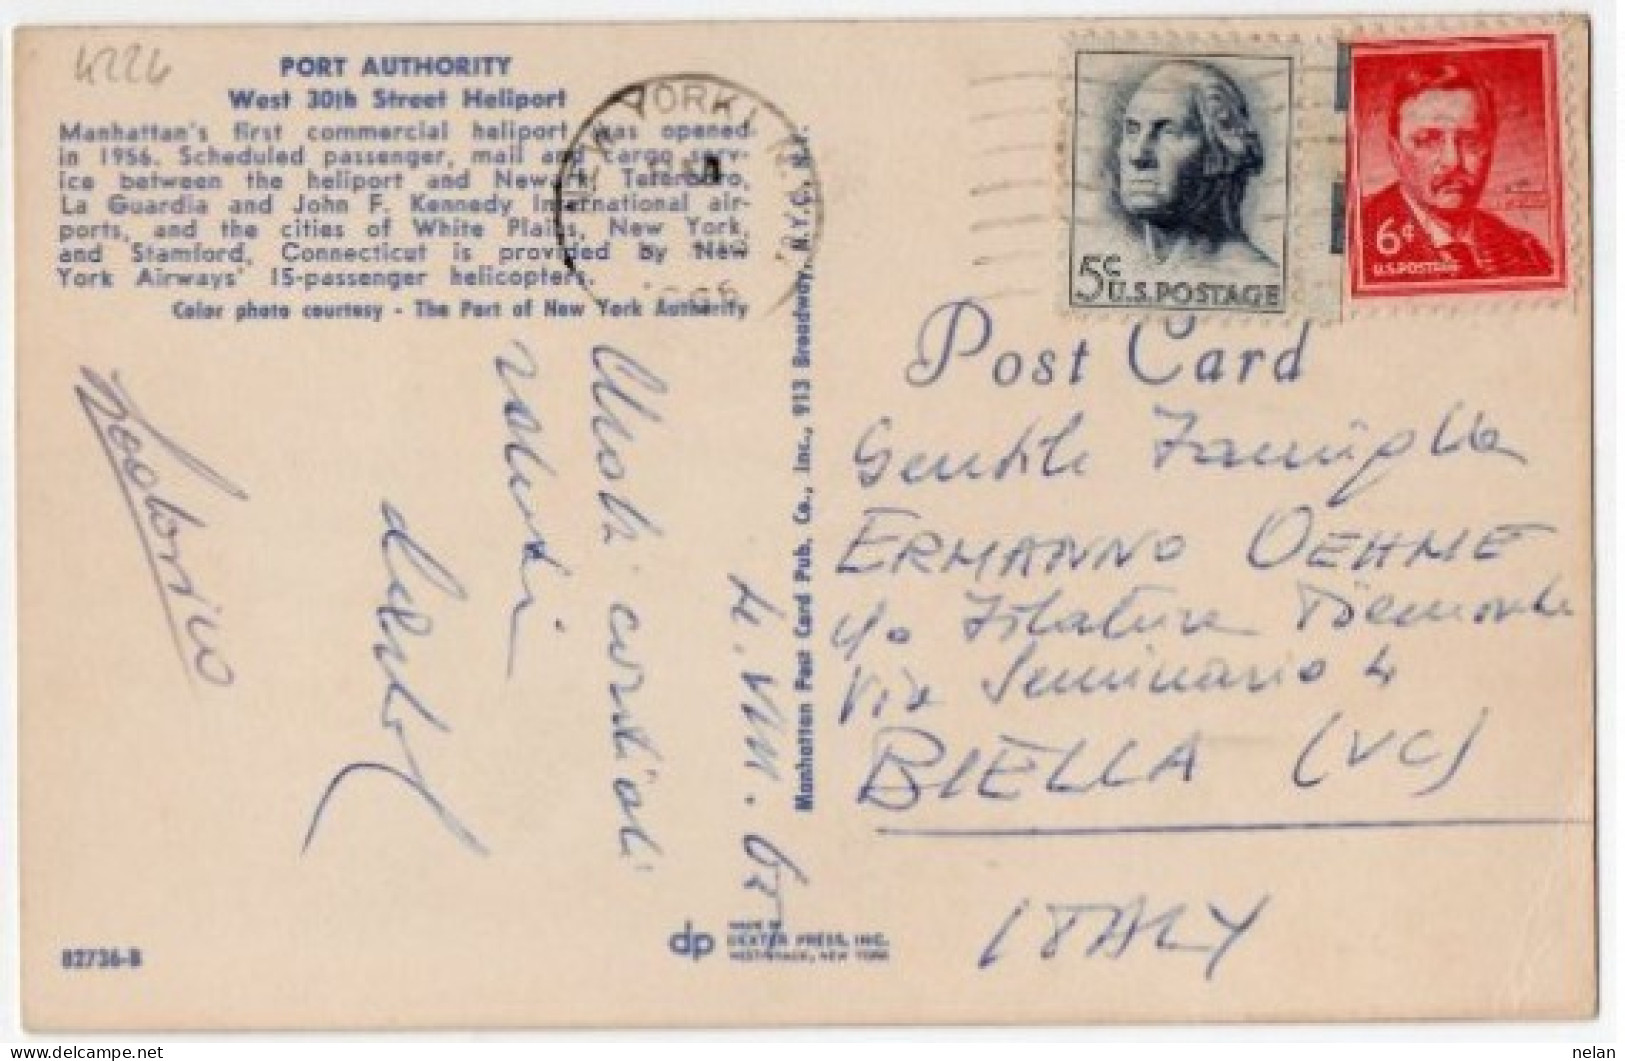 4226
PORT AUTHORITY
West 30th Street Heliport
Manhattan's first commercial heliport was opened
in 1956. Scheduled passenger, mail and cargo serv-
ice between the heliport and Newark, Teterboro,
La Guardia and John F. Kennedy International air-
ports, and the cities of White Plains, New York,
and Stamford, Connecticut is provided by New
York Airways' 15-passenger helicopters.
Color photo courtesy - The Port of New York Authority
YORK
5¢
U.S. POSTAGE
6¢
U.S. POSTAGE
Post Card
Manhattan Post Card Pub. Co., Inc., 913 Broadway, N.Y.C. N.Y.
Molti cordiali
saluti
Gentile Famiglia
ERMANNO OEHME
c/o Filatura Piemonte
Via Seminario 4
BIELLA (VC)
ITALY
82736-B
dp
MADE BY
DEXTER PRESS, INC.
WEST NYACK, NEW YORK
nelan